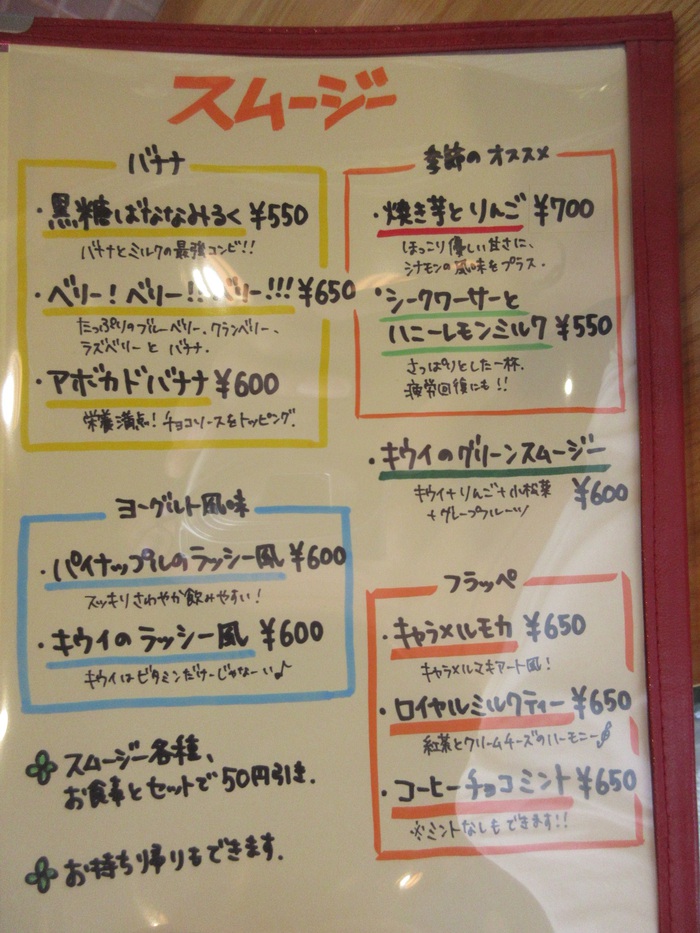 スムージー
バナナ
・黒糖ばななみるく ¥550
バナナとミルクの最強コンビ!!
・ベリー!ベリー!!ベリー!!! ¥650
たっぷりのブルーベリー、クランベリー、
ラズベリーと バナナ.
・アボカドバナナ ¥600
栄養満点!チョコソースをトッピング.
ヨーグルト風味
・パイナップルのラッシー風 ¥600
スッキリさわやか飲みやすい!
・キウイのラッシー風 ¥600
キウイはビタミンだけーじゃなーい♪
スムージー各種、
お食事とセットで50円引き.
お持ち帰りもできます.
季節のオススメ
・焼き芋とりんご ¥700
ほっこり優しい甘さに、
シナモンの風味をプラス.
・シークワーサーと
ハニーレモンミルク ¥550
さっぱりとした一杯.
疲労回復にも!!
・キウイのグリーンスムージー
キウイ+りんご+小松菜 ¥600
+グレープフルーツ
フラッペ
・キャラメルモカ ¥650
キャラメルマキアート風!
・ロイヤルミルクティー ¥650
紅茶とクリームチーズのハーモニー
・コーヒーチョコミント ¥650
※ミントなしもできます!!